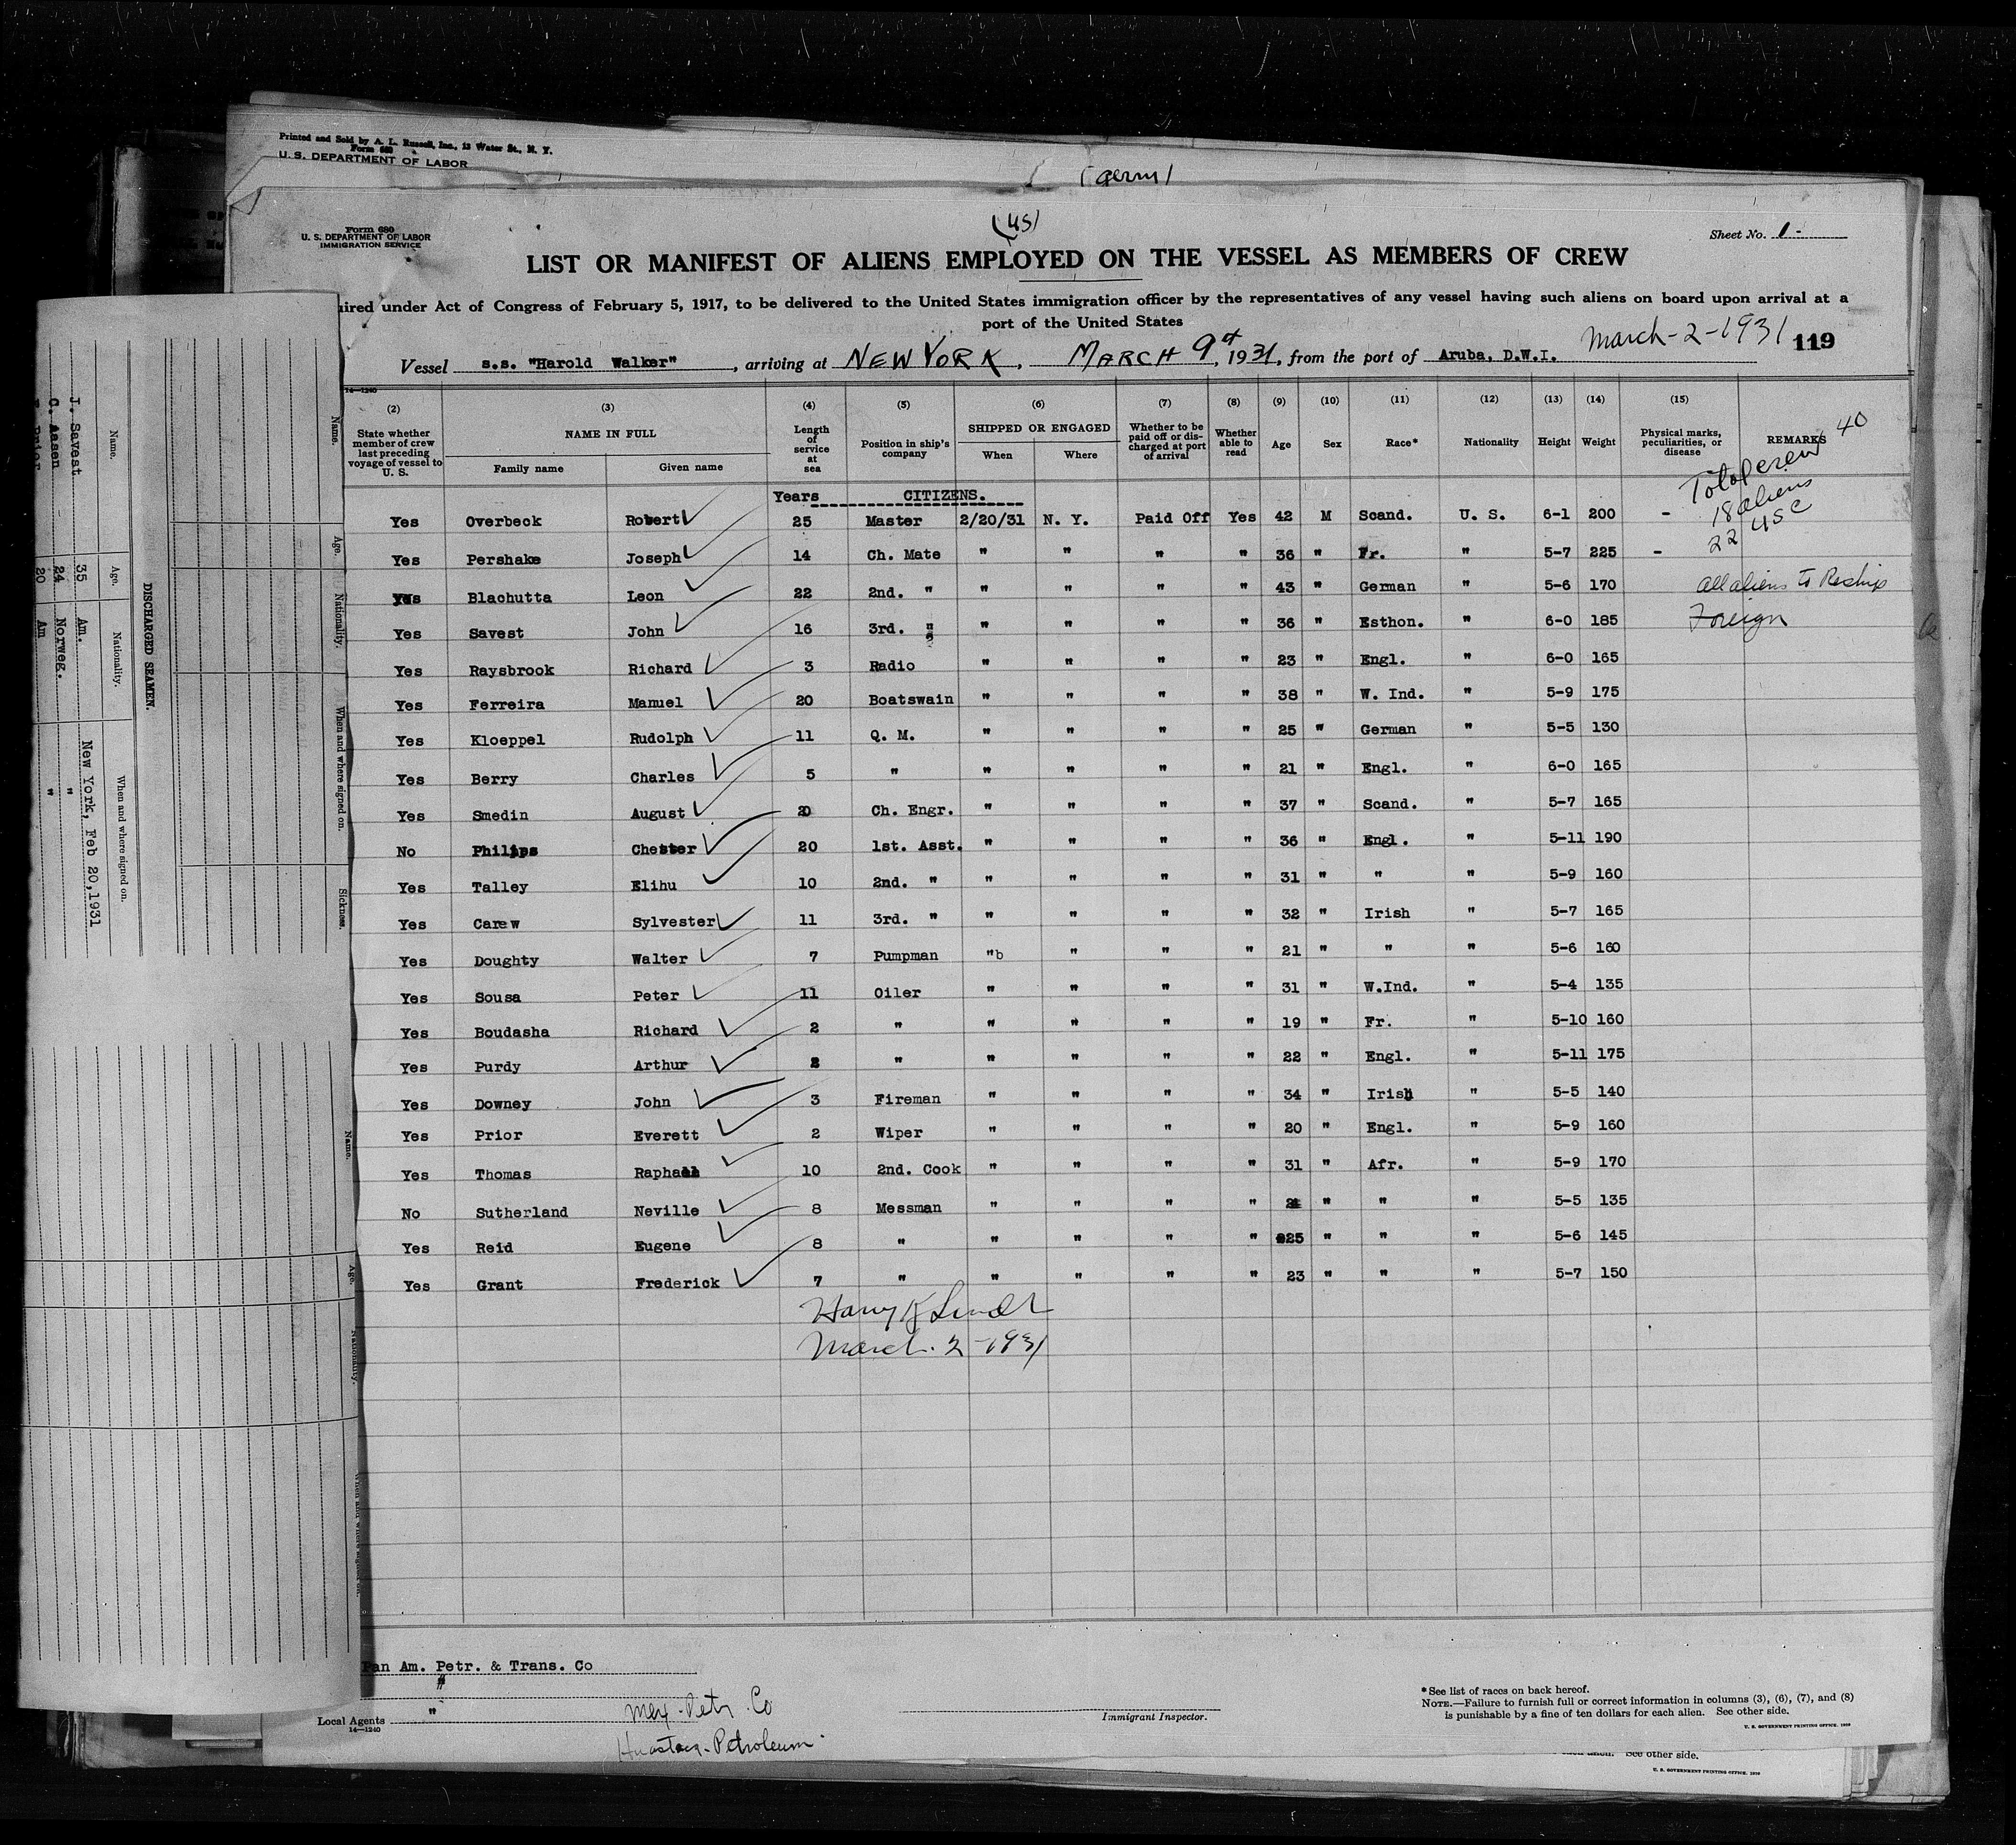 Printed and Sold by A. L. Russell, Inc., 13 Water St., N. Y.
Form 680
U. S. DEPARTMENT OF LABOR
(Germ)
Form 680
U. S. DEPARTMENT OF LABOR
IMMIGRATION SERVICE
(US)
Sheet No. 1-
LIST OR MANIFEST OF ALIENS EMPLOYED ON THE VESSEL AS MEMBERS OF CREW
uired under Act of Congress of February 5, 1917, to be delivered to the United States immigration officer by the representatives of any vessel having such aliens on board upon arrival at a
port of the United States
March-2-1931 119
Vessel s.s. "Harold Walker", arriving at NEW YORK, MARCH 9, 1931, from the port of Aruba, D.W.I.
14—1240
(2) (3) (4) (5) (6) (7) (8) (9) (10) (11) (12) (13) (14) (15)
State whether member of crew last preceding voyage of vessel to U. S. NAME IN FULL Family name Given name Length of service at sea Position in ship's company SHIPPED OR ENGAGED When Where Whether to be paid off or discharged at port of arrival Whether able to read Age Sex Race* Nationality Height Weight Physical marks, peculiarities, or disease REMARKS
Total crew 40
18 aliens
22 USC
all aliens to Reship
Foreign
Years CITIZENS.
Yes Overbeck Robert 25 Master 2/20/31 N. Y. Paid Off Yes 42 M Scand. U. S. 6-1 200 -
Yes Pershake Joseph 14 Ch. Mate " " " " 36 " Fr. " 5-7 225 -
Yes Blachutta Leon 22 2nd. " " " " " 43 " German " 5-6 170
Yes Savest John 16 3rd. " " " " " 36 " Esthon. " 6-0 185
Yes Raysbrook Richard 3 Radio " " " " 23 " Engl. " 6-0 165
Yes Ferreira Manuel 20 Boatswain " " " " 38 " W. Ind. " 5-9 175
Yes Kloeppel Rudolph 11 Q. M. " " " " 25 " German " 5-5 130
Yes Berry Charles 5 " " " " " 21 " Engl. " 6-0 165
Yes Smedin August 20 Ch. Engr. " " " " 37 " Scand. " 5-7 165
No Philips Chester 20 1st. Asst. " " " " 36 " Engl. " 5-11 190
Yes Talley Elihu 10 2nd. " " " " " 31 " " " 5-9 160
Yes Carew Sylvester 11 3rd. " " " " " 32 " Irish " 5-7 165
Yes Doughty Walter 7 Pumpman "b " " " 21 " " " 5-6 160
Yes Sousa Peter 11 Oiler " " " " 31 " W.Ind. " 5-4 135
Yes Boudasha Richard 2 " " " " " 19 " Fr. " 5-10 160
Yes Purdy Arthur " " " " " 22 " Engl. " 5-11 175
Yes Downey John 3 Fireman " " " " 34 " Irish " 5-5 140
Yes Prior Everett 2 Wiper " " " " 20 " Engl. " 5-9 160
Yes Thomas 10 2nd. Cook " " " " 31 " Afr. " 5-9 170
No Sutherland Neville 8 Messman " " " " " " " 5-5 135
Yes Reid Eugene 8 " " " " " 25 " " " 5-6 145
Yes Grant Frederick 7 " " " " " 23 " " " 5-7 150
March. 2-1931
Pan Am. Petr. & Trans. Co
"
Local Agents "
14—1240
Mex. Petr. Co
Huasteca-Petroleum
Immigrant Inspector.
*See list of races on back hereof.
NOTE.—Failure to furnish full or correct information in columns (3), (6), (7), and (8)
is punishable by a fine of ten dollars for each alien. See other side.
U. S. GOVERNMENT PRINTING OFFICE. 1929
See other side.
U. S. GOVERNMENT PRINTING OFFICE.
DISCHARGED SEAMEN.
Name. Age. Nationality. When and where signed on.
J. Savest 35 Am. New York, Feb 20,1931
C. Aasen 24 Norweg. "
20 Am "
Name. Age. Nationality. When and where signed on. Sickness.
Name. Age. Nationality.